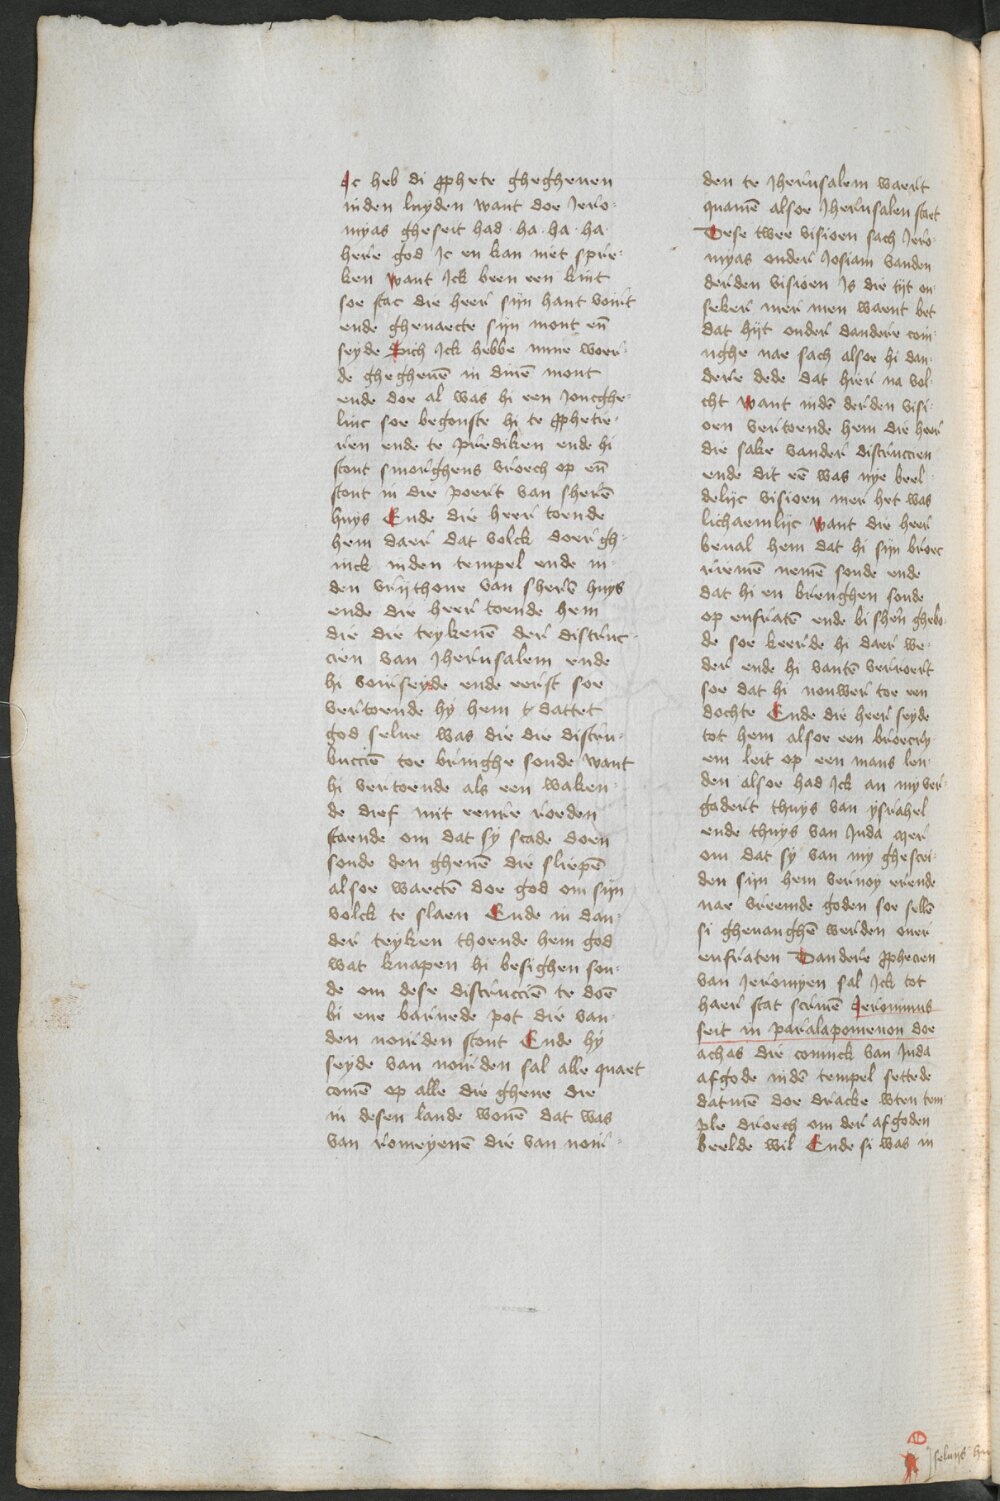 Ic heb di ꝓphete ghegheuen
inden luyden want doe Jero-
myas gheseit had · ha · ha · ha
here god Ic en kan niet spre-
ken want Ick been een kint
soe stac die heer sijn hant voirt
ende ghenaecte sijn mont eñ
seyde Sich Ick hebbe mine woer-
de ghegheuē in dinē mont
ende doe al was hi een Joncghe-
linc soe begonste hi te ꝓphetie-
ren ende te prediken ende hi
stont smorghens vroech op eñ
stont in die poert van sherē
huys Ende die heer toende
hem daer dat volck doergh-
inck inden tempel ende in-
den vrijthoue van sherē huys
ende die heer toende hem
die die teykenē der distruc-
cien van Jherusalem ende
hi voirseyde ende eerst soe
vertoende hy hem t dattet
god selue was die die distri-
bucciē toe bringhe soude want
hi vertoende als een waken-
de dief mit eenre roeden
staende om dat sy scade doen
soude den ghenē die sliepē
alsoe waectē doe god om sijn
volck te slaen Ende in dan-
der teyken thoende hem god
wat knapen hi besighen sou-
de om dese distrucciē te doē
bi ene barnede pot die van
den noirden stont Ende hy
seyde van noirden sal alle quaet
comē op alle die ghene die
in desen lande wonē dat was
van romeyenē die van noir-
den te Jherusalem waert
quamē alsoe Jherusalen staet
Dese twee visioen sach Jero-
myas onder Josiam vanden
derden visioen Is die tijt on-
seker mer men waent bet
dat hijt onder dandere con-
nghe nae sach alsoe hi dan-
dere dede dat hier na vol-
cht want indē derden visi-
oen vertoende hem die heer
die sake vander distruccien
ende dit eē was nye beel-
delijc visioen mer het was
lichaemlijc want die heer
beual hem dat hi sijn broec
riemē nemē soude ende
dat hi en brenghen soude
op eufratē ende bi sherñ ghebo-
de soe keerde hi daer we-
der ende hi vantē verroert
soe dat hi nouwer toe een
dochte Ende die heer seyde
tot hem alsoe een broecry
em leit op een mans len-
den alsoe had Ick an my ver-
gadert thuys van ysrahel
ende thuys van Juda mer
om dat sy van my ghescei-
den sijn hem vernoyerende
nae vreemde goden soe sellē
si gheuanghē werden ouer
eufraten Dandere ꝓphecien
van Jeromyen sal Ick tot
haer stat scriuē Jeronimus
seit in paralapomenon doe
achas die coninck van Juda
afgode indē tempel settede
datmē doe dracke wten tem
ple droech om der afgoden
beelde wil Ende si was in
selues